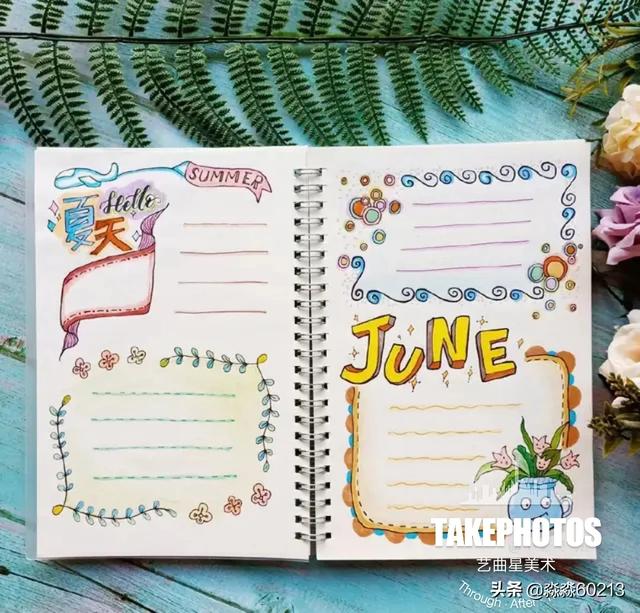 SUMMER
Hello
夏天
JUNE
TAKEPHOTOS
艺曲星美术
Through · After
头条 @淼淼60213